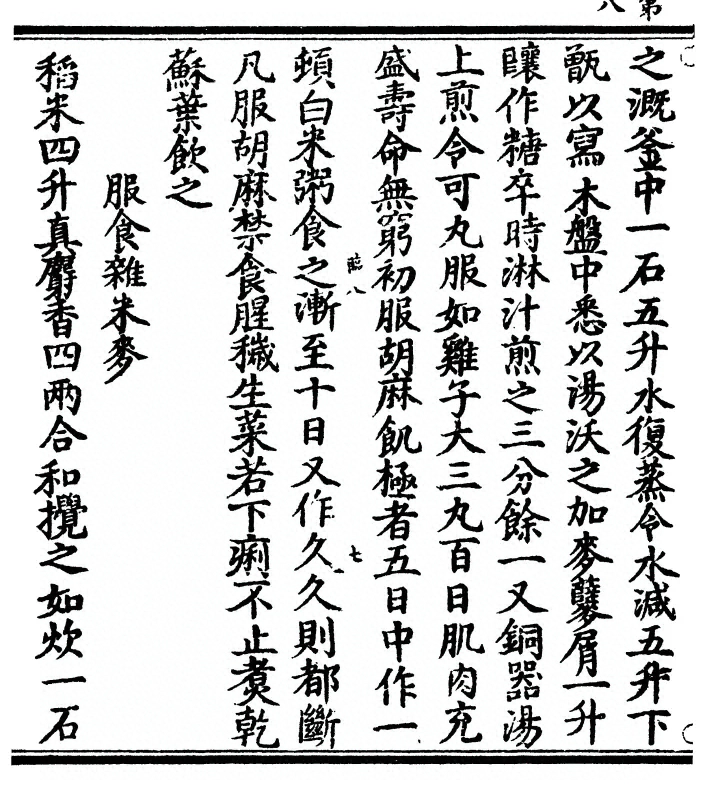 第
八
之溉釜中一石五升水復蒸令水減五升下
甑以寫木盤中悉以湯沃之加麥糵屑一升
釀作糖卒時淋汁煎之三分餘一又銅器湯
上煎令可丸服如雞子大三丸百日肌肉充
盛壽命無窮初服胡麻飢極者五日中作一
頓白米粥食之漸至十日又作久久則都斷
臨八
七
凡服胡麻禁食腥穢生菜若下痢不止煑乾
蘇葉飲之
服食雜米麥
稻米四升真麝香四兩合和攪之如炊一石